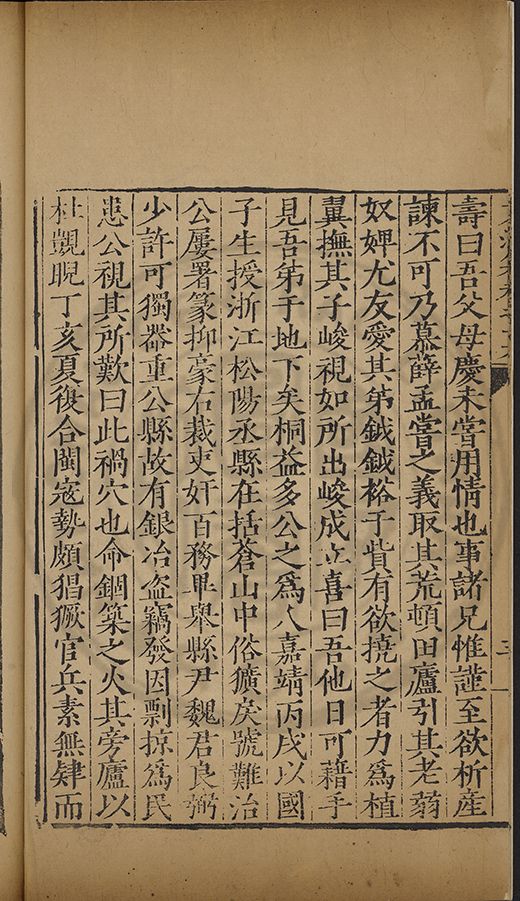 壽曰吾父母慶未嘗用情也事諸兄惟謹至欲析產
諫不可乃慕薛孟嘗之義取其荒頓田廬引其老弱
奴婢尤友愛其弟鉞鉞裕于貲有欲撓之者力為植
翼撫其子峻視如所出峻成立喜曰吾他日可藉手
見吾弟于地下矣桐益多公之為人嘉靖丙戌以國
子生授浙江松陽丞縣在括蒼山中俗獷戾號難治
公屢署篆抑豪右裁吏奸百務畢舉縣尹魏君良弼
少許可獨器重公縣故有銀冶盜竊發因剽掠為民
患公視其所歎曰此禍穴也命錮築之火其旁廬以
杜覬睨丁亥夏復合閩寇勢頗猖獗官兵素無肄而
三